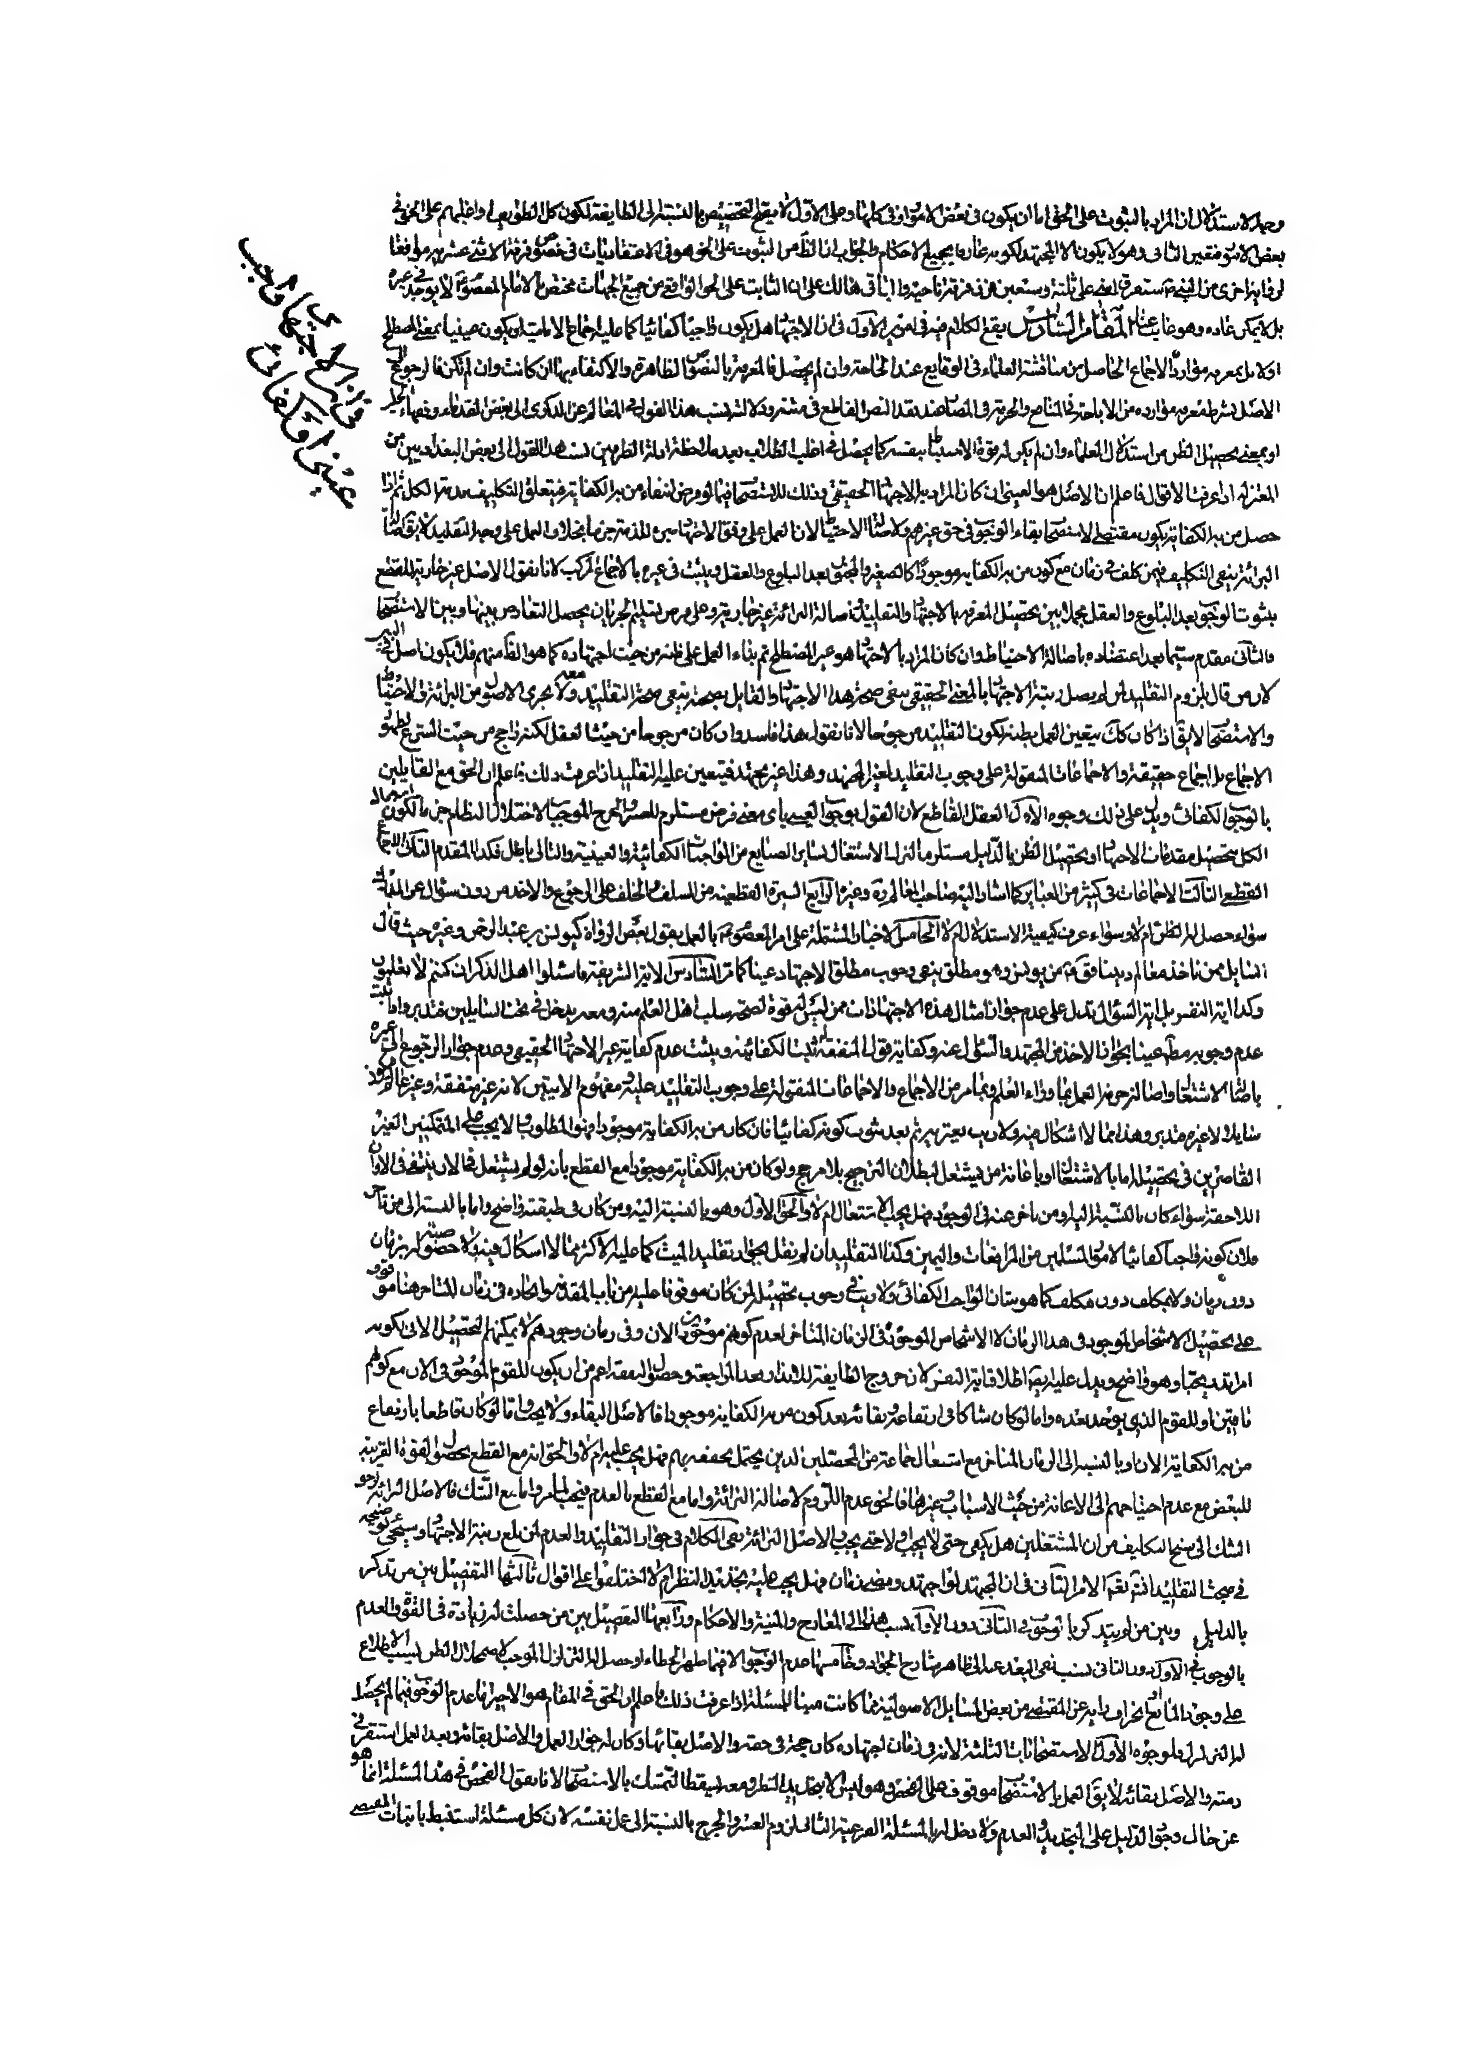 وجه الاستدلال ان المراد بالثبوت على الحق اما ان يكون فى بعض الامور او فى كلها وعلى الاول لا يقع التخصيص بالنسبة الى الطايفة لكون كل الطوايف او اغلبهم على الحق فى
بعض الامور فتعين الثانى وهو لا يكون الا المجتهد لكونه عارفا بجميع الاحكام والجواب ان الظ من الثبوت على الحق هو فى الاعتقاديات
بل لا يمكن عاده وهو غايب عنا المقام السادس يقع الكلام فيه فى امرين الاول فى ان الاجتهاد هل يكون واجبا كفائيا كما عليه اجماع الامامية او يكون عينيا بمعنى اصطلح
اولا بل بمعرفة موارد الاجماع الحاصل من مناقشة العلماء فى الوقايع عند الحاجة وان لم يحصل فالمعرفة بالنصوص الظاهرة والاكتفاء بها ان كانت وان لم تكن فالرجوع الى
الاصل بشرط معرفة موارده من الاباحة فى المنافع والحرمة فى المضار عند فقد النص القاطع
او بمعنى تحصيل الظن من استدلال العلماء وان لم يكن له قوة الاستنباط بنفسه كما يحصل فى اغلب الطلاب بعد ملاحظة ادلة الطرفين نسب هذا القول الى بعض البغداديين من
المعتزلة اذا عرفت الاقوال فاعلم ان الاصل هو العينى ان كان المراد به الاجتهاد الحقيقى وذلك للاستصحاب فيما لو فرض انتفاء من به الكفاية فيتعلق التكليف بذمة الكل ثم اذا
حصل من به الكفاية يكون مقتضى الاستصحاب بقاء الوجوب فى حق غيرهم ولاصالة الاحتياط لان العمل على وفق الاجتهاد مبرء للذمة جزما بخلاف العمل على وجه التقليد لا يق اصالة
البرائة ينفى التكليف فيمن كلف فى زمان مع كون من به الكفاية موجودا كالصغير والمجنون بعد البلوغ والعقل ويثبت فى غيره بالاجماع المركب لانا نقول الاصل غير جار بة للقطع
بثبوت الوجوب بعد البلوغ والعقل مجملا بين تحصيل المعرفة بالاجتهاد والتقليد فاصالة البرائة غير جارية وعلى فرض تسليم الجريان يحصل التعارض بينها وبين الاستصحاب
والثانى مقدم سيما بعد اعتضاده باصالة الاحتياط وان كان المراد بالاجتهاد هو غير المصطلح ثم بناء العمل على ظنه من حيث اجتهاده كما هو الظ منهم فلا يكون اصل فى البين
لان من قال بلزوم التقليد لمن لم يصل رتبة الاجتهاد بالمعنى الحقيقى ينفى صحة هذا الاجتهاد والقايل بصحته ينفى صحة التقليد معه ولا يجرى الاصول من البرائة والاحتياط
والاستصحاب لا يق اذا كان كك يتعين العمل بظنه لكون التقليد مرجوحا لانا نقول هذا فاسد وان كان مرجوحا من حيث العقل لكنه راجح من حيث الشرع
الاجماع بل اجماع حقيقة والاجماعات المنقولة على وجوب التقليد لغير المجتهد وهذا غير مجتهد فيتعين عليه التقليد اذا عرفت ذلك فاعلم ان الحق مع القايلين
بالوجوب الكفائى ويدل على ذلك وجوه الاول العقل القاطع لان القول بوجوب العينى باى معنى فرض مستلزم للعسر والحرج الموجب لاختلال النظام
الكل بتحصيل مقدمات الاجتهاد او تحصيل الظن بالدليل مستلزما لترك الاشتغال لساير الصنايع من الواجبات الكفائية والعينية والتالى باطل فكذا المقدم الثانى الاجماع
القطعى الثالث الاجماعات فى كثير من العباير كما اشار اليه صاحب المعالم ره وغيره الرابع السيرة القطعية من السلف والخلف على الرجوع والاخذ من دون سئوال عن
سواء حصل له الظن ام لا وسواء عرف كيفية الاستدلال ام لا الخامس الاخبار المشتملة على امر المعصوم ع بالعمل بقول بعض الرواة كيونس بن عبد الرحمن وغيره حيث قال
السايل ممن ناخذ معالم ديننا فق ع من يونس وهو مطلق ينفى وجوب مطلق الاجتهاد عينا كما مر السادس الاية الشريفة فاسئلوا اهل الذكر ان كنتم لا تعلمون
وكذا اية النفر بل اية السئوال تدل على عدم جواز امثال هذه الاجتهادات ممن ليس له قوة لصحة سلب اهل العلم منه ومعه يدخل فى تحت السايلين فتدبر واذا ثبت
عدم وجوبه مط عينا بجواز الاخذ من المجتهد والسئوال عنه وكفاية قول المتفقة ثبت الكفائية ويثبت عدم كفاية غير الاجتهاد الحقيقى وعدم جواز الرجوع الى غيره
باصالة الاشتغال واصالة حرمة العمل بما وراء العلم وبما مر من الاجماع والاجماعات المنقولة على وجوب التقليد عليه ومفهوم الايتين لانه غير متفقة وغير عالم
وهذا مما لا اشكال فيه ولا ريب يعتريه ثم بعد ثبوت كونه كفائيا فان كان من به الكفاية موجودا فهو المطلوب ولا يجب على المتمكنين الغير
القاصرين فى تحصيله اما بالاشتغال او باعانة من يشتغل لبطلان الترجيح بلا مرجح ولو كان من به الكفاية موجودا مع القطع بانه لو لم يشتغل فى الان ينتفى فى الاوان
اللاحقة سواء كان بالنسبة اليه او من تاخر عنه فى الوجود فهل يجب الاشتغال ام لا والحق الاول وهو بالنسبة اليه ومن كان فى طبقته واضح واما بالنسبة الى من تاخر
فلان كونه واجبا كفائيا لامور المسلمين من المرافعات واليمين وكذا التقليد ان لم نقل بجواز تقليد الميت كما عليه الاكثر مما لا اشكال فيه ولا خصوصية له بزمان
دون زمان ولا بمكلف دون مكلف كما هو شان الواجب الكفائى ولا ريب فى وجوب تحصيل من كان موقوفا عليه من باب المقدمة وايجاده فى زمان المتاخر هنا موقوف
على تحصيل الاشخاص الموجود فى هذا الزمان لا الاشخاص الموجود فى الزمان المتاخر لعدم كونهم موجودين الان وفى زمان وجودهم لا يمكنهم التحصيل الانى لكونه
امرا تدريجيا وهو واضح ويدل عليه ايض اطلاق اية النفر لان خروج الطايفة للانذار بعد المراجعة وحصول التفقه اعم من ان يكون للقوم الموجود فى الان مع كونهم
باقين او للقوم الذى يوجد بعده واما لو كان شاكا فى ارتفاعه وبقائه بعد كون من به الكفاية موجودا فالاصل البقاء ولا يجب واما لو كان قاطعا بارتفاع
من به الكفاية الان او بالنسبة الى الزمان المتاخر مع اشتغال جماعة من المحصلين الذين يحتمل تحققه بهم فهل يجب عليه ام لا والحق انه مع القطع بحصول القوة القريبة
للبعض مع عدم احتياجهم الى الاعانة من حيث الاسباب وغيرها فالحق عدم اللزوم لاصالة البرائة واما مع القطع بالعدم فيجب لما مر واما مع الشك فالاصل البرائة
الشك الى ان المشتغلين هل يكفى حتى لا يجب او لا حتى يجب والاصل البرائة بقى الكلام فى جواز التقليد والعدم لمن بلغ رتبة الاجتهاد وسيجىء
فى مبحث التقليد انشاء الله نعم الامر الثانى فى ان المجتهد لو اجتهد ومضى زمان فهل يجب عليه تجديد النظر ام لا اختلفوا على اقوال ثالثها التفصيل بين من تذكر
بالدليل وبين من لم يتذكر بالوجوب فى الثانى دون الاول نسب هذا الى المعارج والمنية والاحكام ورابعها التفصيل بين من حصلت له زيادة فى القوة والعدم
بالوجوب فى الاول دون الثانى نسب نفى البعد عنه الى ظاهر شارح الجواد وخامسها عدم الوجوب الا فيما ظهر الخطاء او حصل له التزلزل الموجب لاضمحلال الظن بسبب الاطلاع
على وجود المانع او انحراف رايه عن المقتضى من بعض المسايل الاصولية مما كانت مبنا للمسئلة اذا عرفت ذلك فاعلم ان الحق فى المقام هو الاخير اما عدم الوجوب فيما لم يحصل
له التزلزل فلوجوه الاول الاستصحابات الثلثة لانه فى زمان اجتهاده كان حجة فى حقه والاصل بقائها وكان له جواز العمل والاصل بقائه وبعد العمل استقر فى
ذمته والاصل بقائه لا يق العمل بالاستصحاب موقوف على الفحص وهو ليس الا بتجديد النظر ومعه يسقط التمسك بالاستصحاب لانا نقول الفحص فى هذا المسئلة انما هو
عن حال وجود الدليل على التجديد والعدم ولا دخل له بالمسئلة الفرعية الثانى لزوم العسر والحرج بالنسبة الى عمل نفسه لان كل مسئلة استنبط باثبات المقتضى
فى ان الاجتهاد واجب
عينى او كفائى